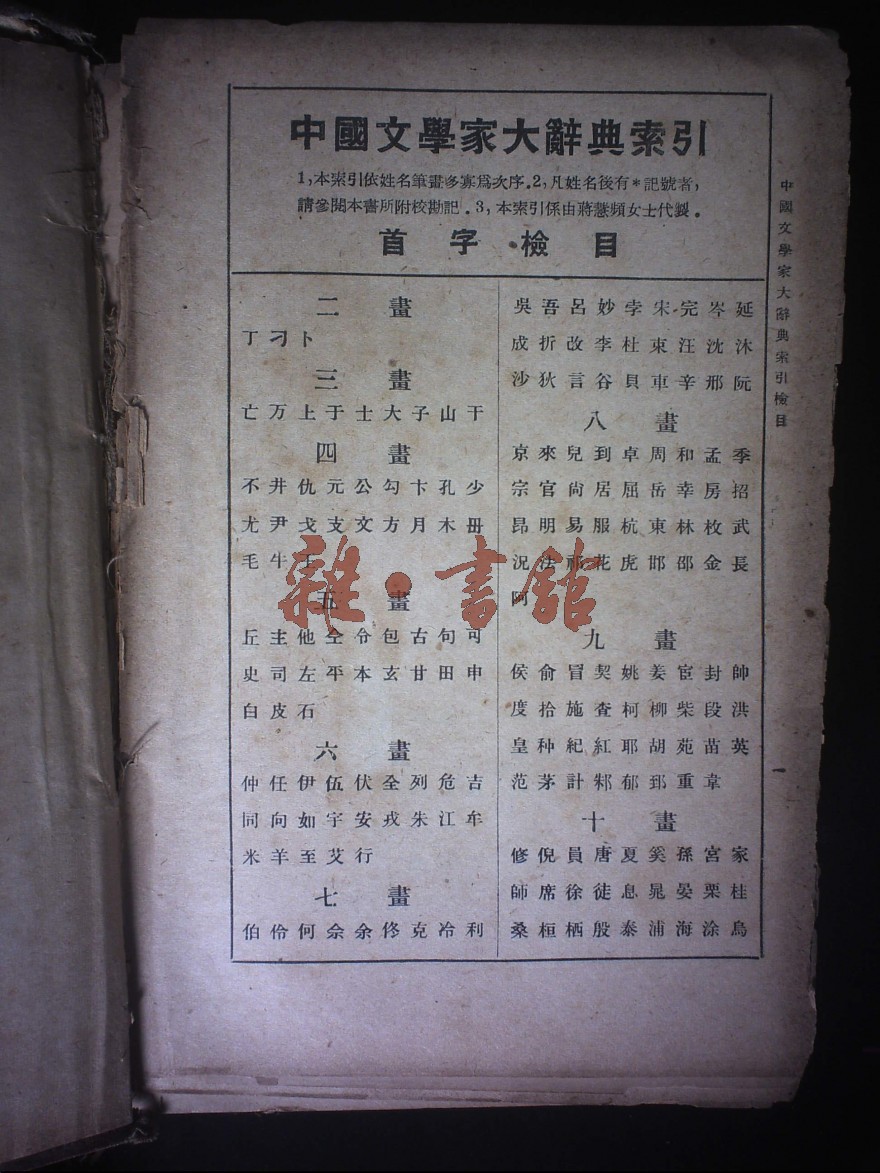 中國文學家大辭典索引
1，本索引依姓名筆畫多寡爲次序．2，凡姓名後有*記號者，
請參閱本書所附校勘記．3，本索引係由蔣慧頻女士代製．
首字檢目
二畫
丁刁卜
三畫
亡万上于士大子山干
四畫
不井仇元公勾卞孔少
尤尹戈支文方月木毌
毛牛王
五畫
丘主他仝令包古句可
史司左平本玄甘田申
白皮石
六畫
仲任伊伍伏全列危吉
同向如宇安戎朱江牟
米羊至艾行
七畫
伯伶何佘余佟克冷利
吳吾呂妙孛宋完岑延
成折改李杜束汪沈沐
沙狄言谷貝車辛邢阮
八畫
京來兒到卓周和孟季
宗官尙居屈岳幸房招
昂明易服杭東林枚武
況法祁花虎邯邵金長
阿
九畫
侯俞冒契姚姜宦封帥
度拾施査柯柳柴段洪
皇种紀紅耶胡苑苗英
范茅計郏郁郅重韋
十畫
修倪員唐夏奚孫宮家
師席徐徒息晁晏栗桂
桑桓栖殷泰浦海涂烏
中國文學家大辭典索引檢目
雜·書館